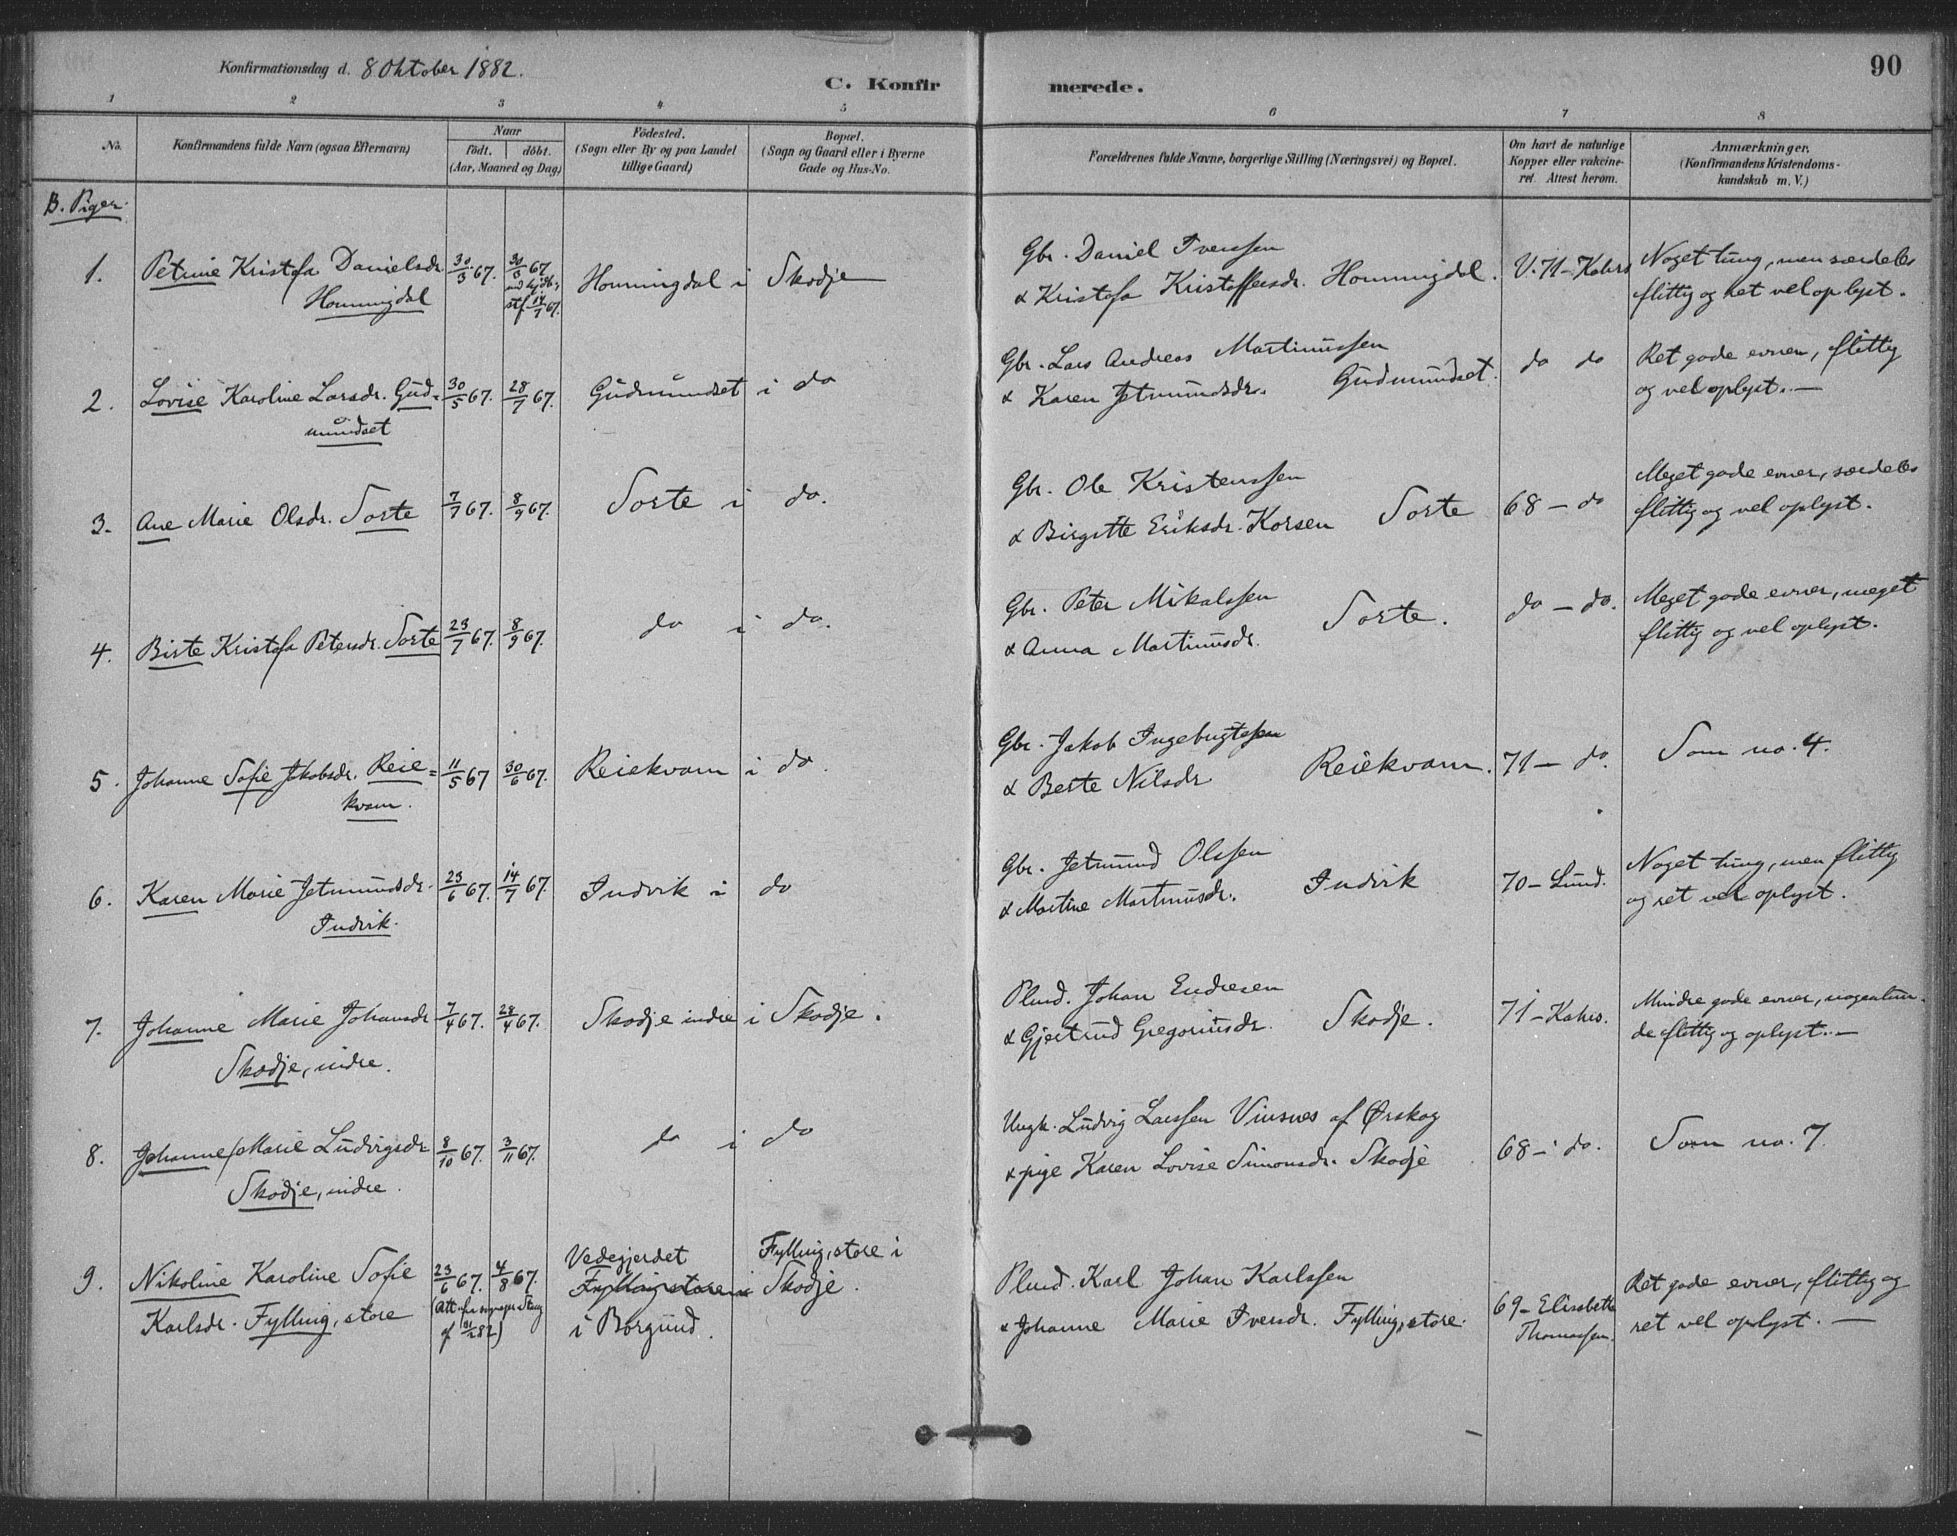 90
Konfirmationsdag d. 8 Oktober 1882.
C. Konfirmerede.
1 2 3 4 5 6 7 8
No.
Konfirmandens fulde Navn (ogsaa Efternavn)
Naar
födt. döbt.
(Aar, Maaned og Dag)
Födested.
(Sogn eller By og paa Landet
tillige Gaard)
Bopæl.
(Sogn og Gaard eller i Byerne
Gade og Hus-No.
Forældrenes fulde Navne, borgerlige Stilling (Næringsvei) og Bopæl.
Om havt de naturlige
Kopper eller vakcine-
ret. Attest herom.
Anmærkninger.
(Konfirmandens Kristendoms-
kundskab m. V.)
B. Piger.
1. Petrine Kristofa Danielsdr. 30/3 67. Hommingdal i Skodje
Hommingdal
Gbr. Daniel Iverssen
& Kristofa Kristoffersdr. Hommingdal. V. 71 – Kahrs
Noget tung, men særdeles
flittig og ret vel oplyst.
2. Lovise Karoline Larsdr. Gud= 30/5 67. 28/7 67. Gudmundset i do
mundset
Gbr. Lars Andreas Martinussen
& Karen Jetmundsdr. Gudmundset. do do
Ret gode evner, flittig
og vel oplyst. —
3. Ane Marie Olsdr. Sorte 7/7 67. 8/9 67. Sorte i do.
Gbr. Ole Kristenssen
& Birgitte Eriksdr. Korsen Sorte 68 – do
Meget gode evner, særdeles
flittig og vel oplyst.
4. Birte Kristofa Petersdr. Sorte 23/7 67. 8/9 67. do i do.
Gbr. Peter Mikalssen
& Anna Martinusdr. Sorte. do – do.
Meget gode evner, meget
flittig og vel oplyst.
5. Johanne Sofie Jakobsdr. Reie= 11/5 67 30/6 67. Reiekvam i do.
kvam.
Gbr. Jakob Ingebrigtssen
& Berte Nilsdr Reiekvam. 71 – do.
Som no. 4.
6. Karen Marie Jetmundsdr. 23/6 67. 14/7 67. Indvik i do
Indvik.
Gbr. Jetmund Olssen
& Martine Martinusdr. Indvik 70 – Lund.
Noget tung, men flittig
og ret vel oplyst.
7. Johanne Marie Johansdr. 7/4 67. 28/4 67. Skodje indre i Skodje.
Skodje, indre.
Plmd. Johan Endresen
& Gjertrud Gregoriusdr. Skodje. 71 – Kahrs.
Mindre gode evner, nogenlun-
de flittig og oplyst. —
8. Johanne Marie Ludvigsdr. 8/10 67. 3/11 67. do i do
Skodje, indre.
Ungk. Ludvig Larssen Vinsnes af Ørskog
& pige Karen Lovise Simonsdr. Skodje 68 – do.
Som no. 7.
9. Nikoline Karoline Sofie 23/6 67. 4/8 67. Vedegjerdet
Fylling, store i
Karlsdr. Fylling, store
Fylling store i Skodje.
i Borgund.
Plmd. Karl Johan Karlssen
& Johanne Marie Iversdr. Fylling, store. 69 – Elisabeth
Thomassen.
Ret gode evner, flittig og
ret vel oplyst. —